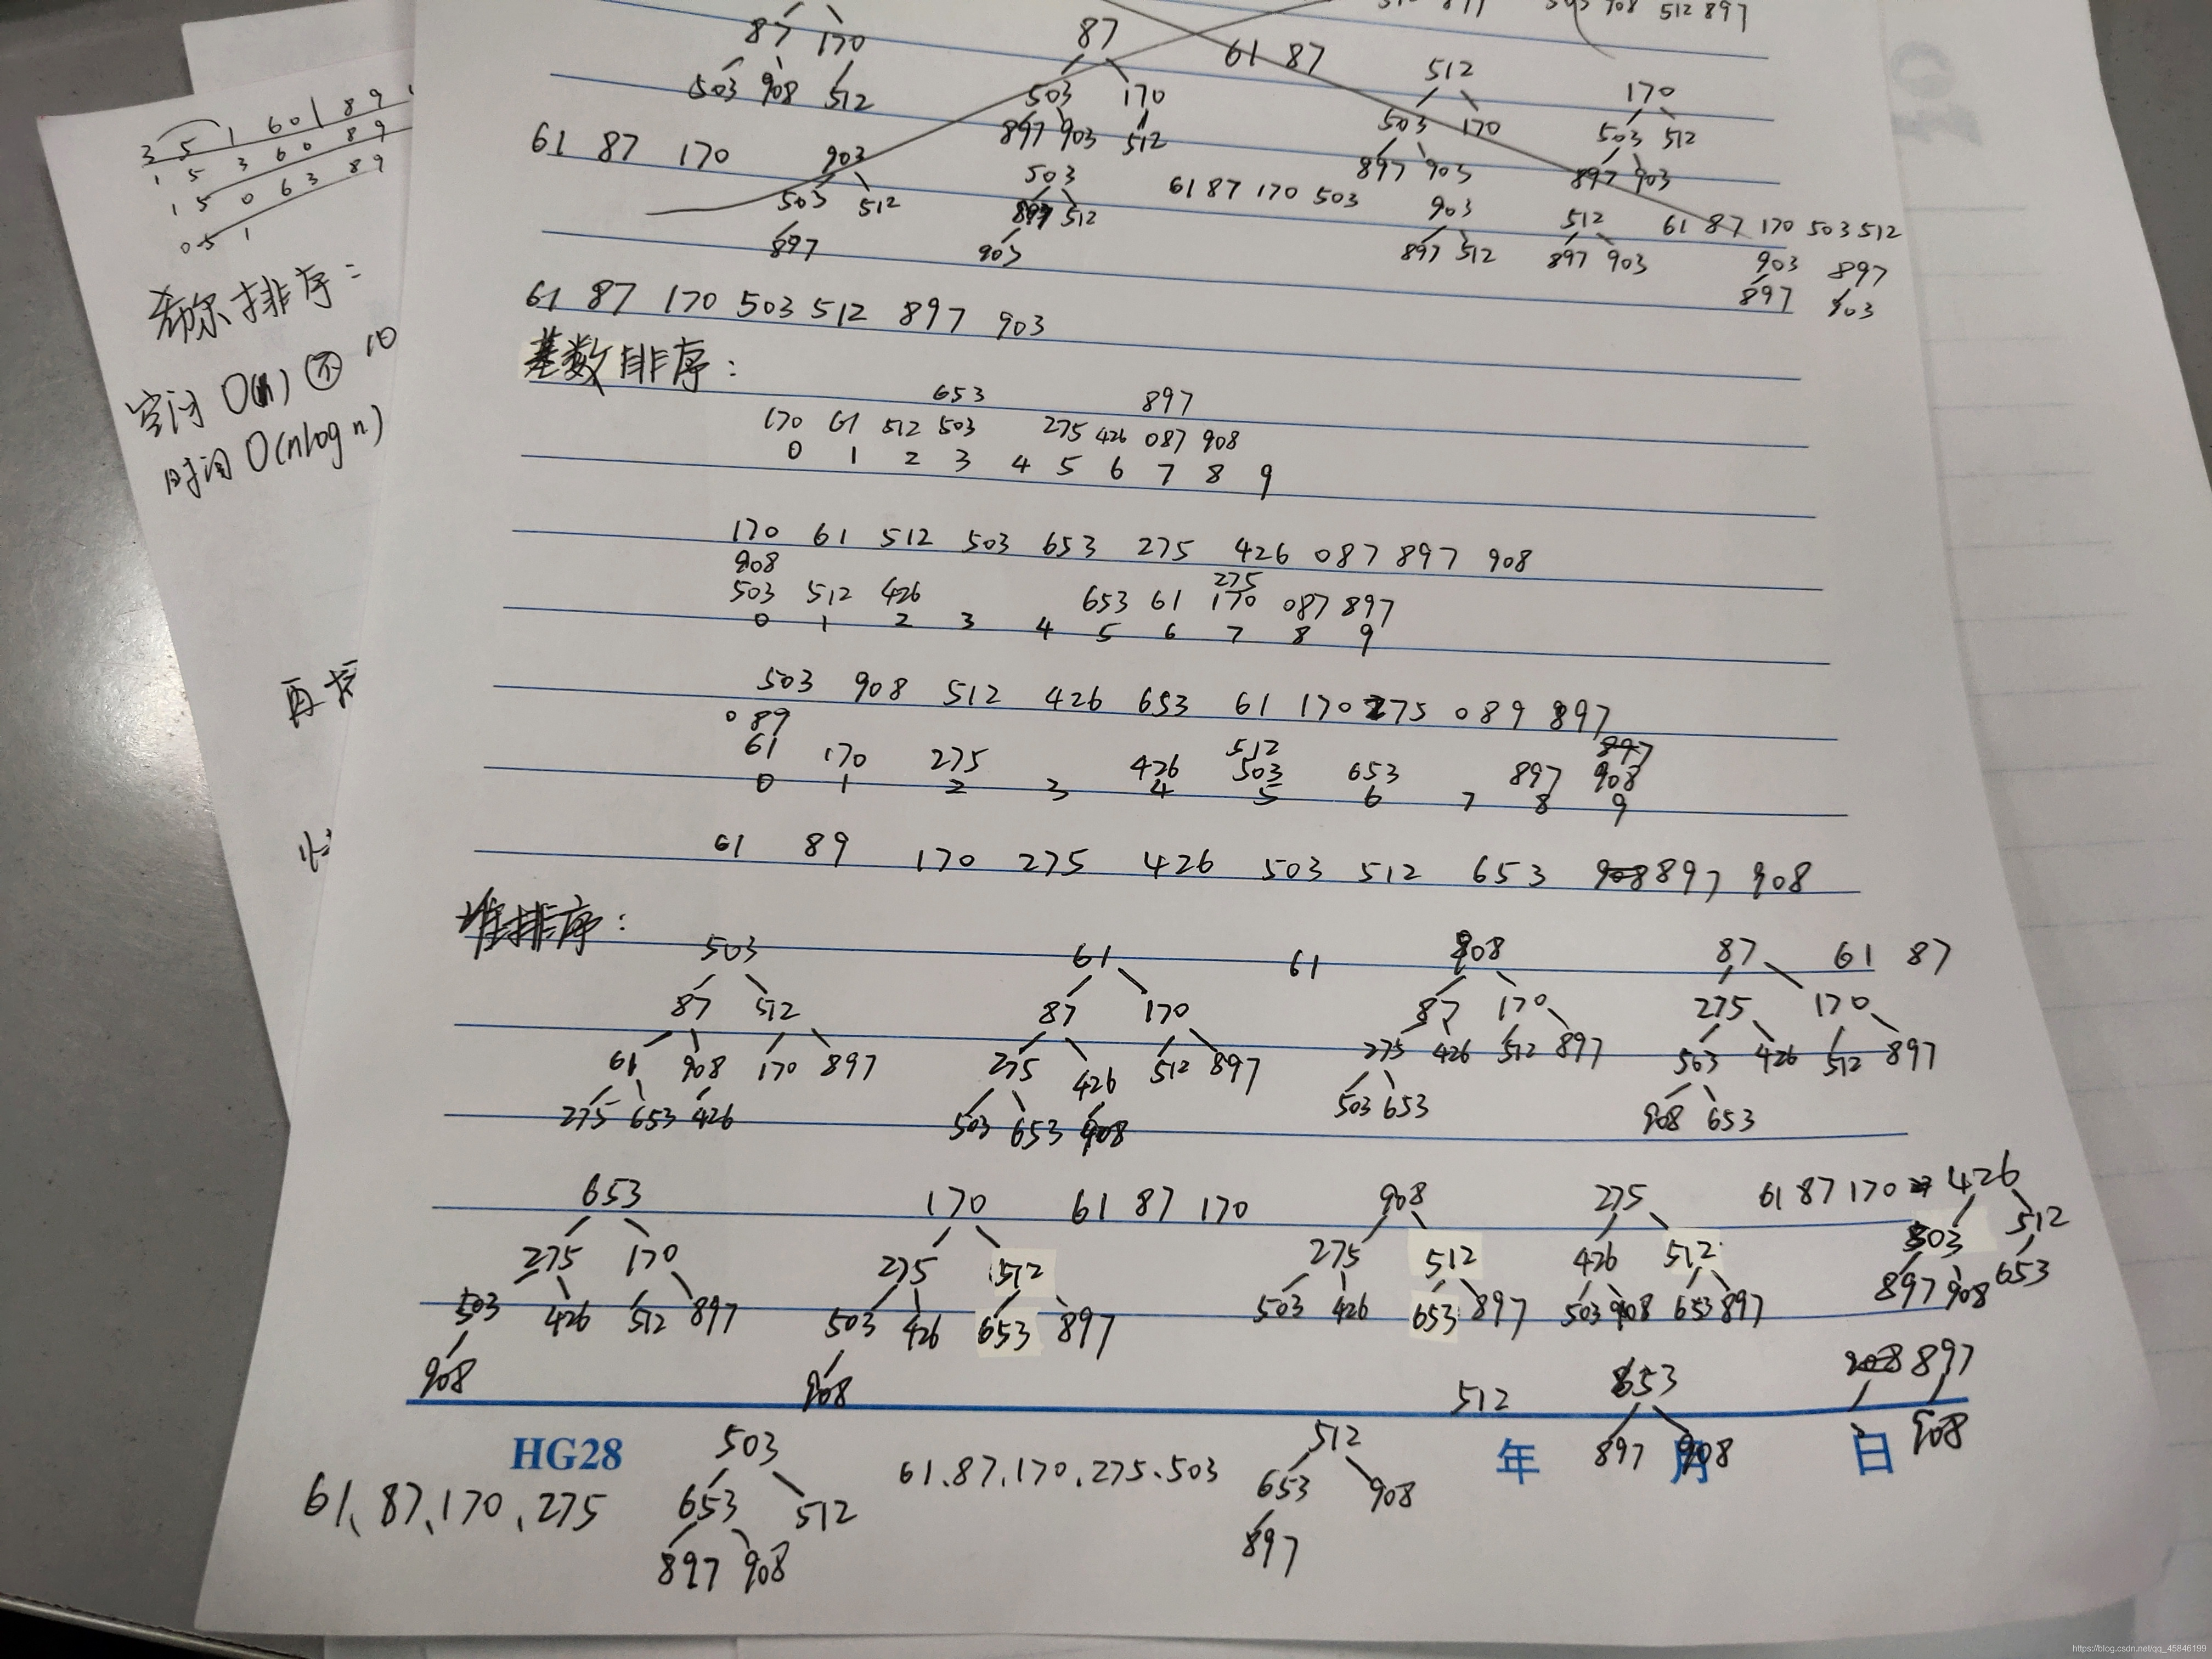 503 908 512 897
87 170
503 908 512
87
503 170
897 903 512
61 87
512
503 170
897 903
170
503 512
897 903
61 87 170
903
503 512
897
503
897 512
903
61 87 170 503
903
897 512
512
897 903
61 87 170 503 512
903
897
897
903
61 87 170 503 512 897 903
基数排序:
653 897
170 61 512 503 275 426 087 908
0 1 2 3 4 5 6 7 8 9
170 61 512 503 653 275 426 087 897 908
908 275
503 512 426 653 61 170 087 897
0 1 2 3 4 5 6 7 8 9
503 908 512 426 653 61 170 275 089 897
089 512 897
61 170 275 426 503 653 897 908
0 1 2 3 4 5 6 7 8 9
61 89 170 275 426 503 512 653 908 897 908
堆排序:
503
87 512
61 908 170 897
275 653 426
61
87 170
275 426 512 897
503 653 908
61
908
87 170
275 426 512 897
503 653
87
275 170
503 426 512 897
908 653
61 87
653
275 170
503 426 512 897
908
170
275 512
503 426 653 897
908
61 87 170
908
275 512
503 426 653 897
275
426 512
503 908 653 897
61 87 170
426
503 512
897 908 653
HG28
61、87、170、275
503
653 512
897 908
61.87.170.275.503
512
653 908
897
512
653
897 908
908 897
908
年 月 日
3 5 1 60 1 89
1 5 3 60 89
1 5 0 63 89
0 5 1
希尔排序:
空间 O(1) 不 10
时间 O(nlogn)
再
https://blog.csdn.net/qq_45846199